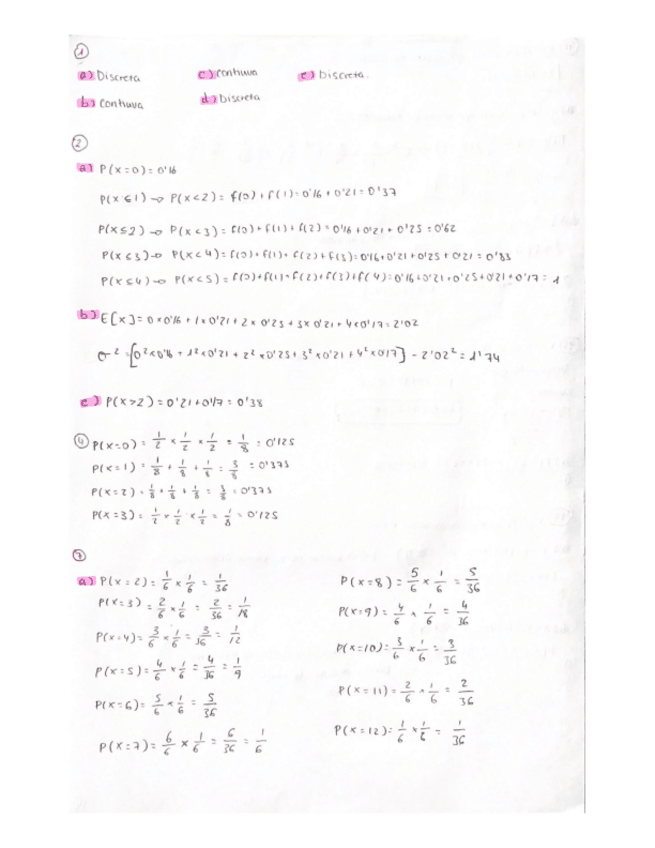 1
a) Discreta c) Continua e) Discreta.
b) Continua d) Discreta
2
a) P(x=0)=0'16
P(x≤1) → P(x<2)= f(0)+f(1)=0'16+0'21=0'37
P(x≤2) → P(x<3)= f(0)+f(1)+f(2)=0'16+0'21+0'25=0'62
P(x≤3) → P(x<4)= f(0)+f(1)+f(2)+f(3)=0'16+0'21+0'25+0'21=0'83
P(x≤4) → P(x<5)= f(0)+f(1)+f(2)+f(3)+f(4)=0'16+0'21+0'25+0'21+0'17=1
b) E[x]=0×0'16+1×0'21+2×0'25+3×0'21+4×0'17=2'02
σ²=[0²×0'16+1²×0'21+2²×0'25+3²×0'21+4²×0'17]-2'02²=1'74
c) P(x>2)=0'21+0'17=0'38
4 P(x=0)= 1/2 × 1/2 × 1/2 = 1/8 = 0'125
P(x=1)= 1/8 + 1/8 + 1/8 = 3/8 = 0'375
P(x=2)= 1/8 + 1/8 + 1/8 = 3/8 = 0'375
P(x=3)= 1/2 × 1/2 × 1/2 = 1/8 = 0'125
7
a) P(x=2)= 1/6 × 1/6 = 1/36
P(x=3)= 2/6 × 1/6 = 2/36 = 1/18
P(x=4)= 3/6 × 1/6 = 3/36 = 1/12
P(x=5)= 4/6 × 1/6 = 4/36 = 1/9
P(x=6)= 5/6 × 1/6 = 5/36
P(x=7)= 6/6 × 1/6 = 6/36 = 1/6
P(x=8)= 5/6 × 1/6 = 5/36
P(x=9)= 4/6 × 1/6 = 4/36
P(x=10)= 3/6 × 1/6 = 3/36
P(x=11)= 2/6 × 1/6 = 2/36
P(x=12)= 1/6 × 1/6 = 1/36